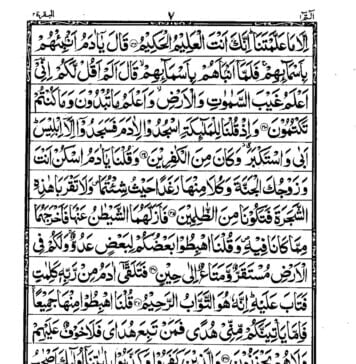 البقرة ٢ ٧ الٓمّٓ ١
اِلَّا مَا عَلَّمْتَنَا اِنَّكَ اَنْتَ الْعَلِيْمُ الْحَكِيْمُ قَالَ يٰٓاٰدَمُ اَنْۢبِئْهُمْ
بِاَسْمَآئِهِمْ فَلَمَّآ اَنْۢبَاَهُمْ بِاَسْمَآئِهِمْ قَالَ اَلَمْ اَقُلْ لَّكُمْ اِنِّيْٓ
اَعْلَمُ غَيْبَ السَّمٰوٰتِ وَالْاَرْضِ وَاَعْلَمُ مَا تُبْدُوْنَ وَمَا كُنْتُمْ
تَكْتُمُوْنَ وَاِذْ قُلْنَا لِلْمَلٰٓئِكَةِ اسْجُدُوْا لِاٰدَمَ فَسَجَدُوْٓا اِلَّآ اِبْلِيْسَ
اَبٰى وَاسْتَكْبَرَ وَكَانَ مِنَ الْكٰفِرِيْنَ وَقُلْنَا يٰٓاٰدَمُ اسْكُنْ اَنْتَ
وَزَوْجُكَ الْجَنَّةَ وَكُلَا مِنْهَا رَغَدًا حَيْثُ شِئْتُمَا وَلَا تَقْرَبَا هٰذِهِ
الشَّجَرَةَ فَتَكُوْنَا مِنَ الظّٰلِمِيْنَ فَاَزَلَّهُمَا الشَّيْطٰنُ عَنْهَا فَاَخْرَجَهُمَا
مِمَّا كَانَا فِيْهِ وَقُلْنَا اهْبِطُوْا بَعْضُكُمْ لِبَعْضٍ عَدُوٌّ وَلَكُمْ فِي
الْاَرْضِ مُسْتَقَرٌّ وَّمَتَاعٌ اِلٰى حِيْنٍ فَتَلَقّٰٓى اٰدَمُ مِنْ رَّبِّهٖ كَلِمٰتٍ
فَتَابَ عَلَيْهِ اِنَّهٗ هُوَ التَّوَّابُ الرَّحِيْمُ قُلْنَا اهْبِطُوْا مِنْهَا جَمِيْعًا
فَاِمَّا يَاْتِيَنَّكُمْ مِّنِّيْ هُدًى فَمَنْ تَبِعَ هُدَايَ فَلَا خَوْفٌ عَلَيْهِمْ